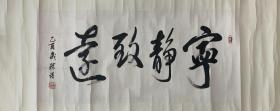 寧静致遠
乙酉